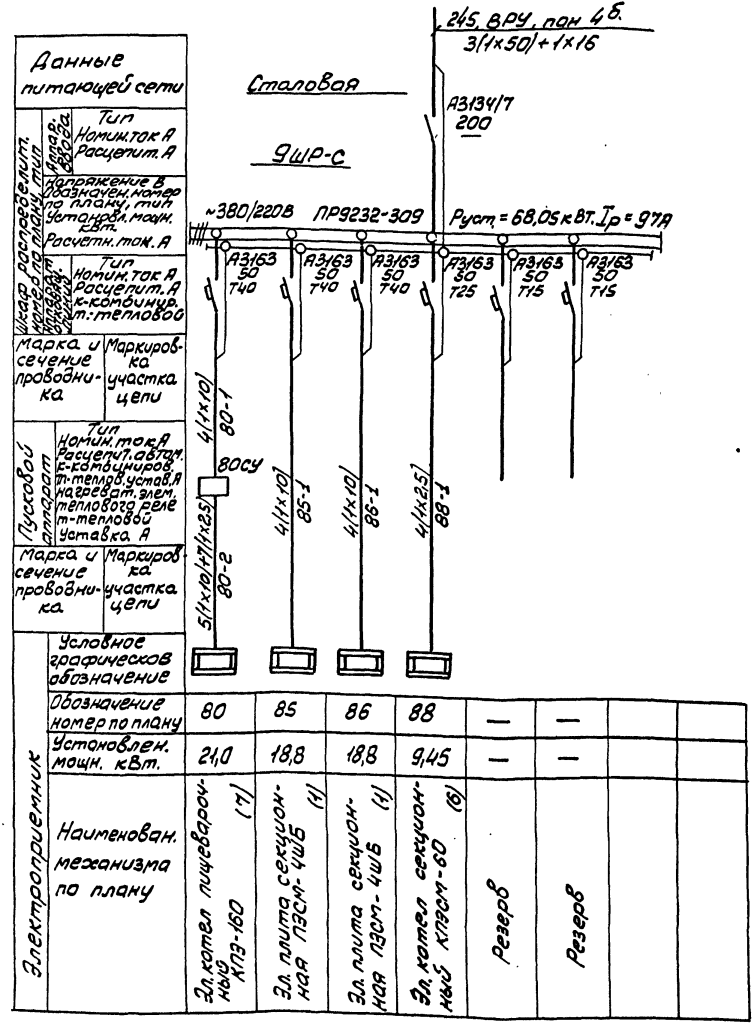 245, ВРУ, пан 4б.
3(1×50)+1×16
Данные
питающей сети
Сталовая
А3134/7
200
9ШР-С
Шкаф распределит.
номер по плану, тип
Аппар.
ввода
Тип
Номин. ток А
Расцепит. А
Напряжение В
Обозначен. номер
по плану, тип
Установл. мощн.
кВт.
Расчетн. ток. А
~380/220В
ПР9232-309
Руст. = 68,05 кВт. Iр = 97А
линии
Тип
Номин. ток А
Расцепит. А
к-комбинир.
т.-тепловой
А3163
50
Т40
А3163
50
Т40
А3163
50
Т40
А3163
50
Т25
А3163
50
Т15
А3163
50
Т15
Марка и
сечение
проводни-
ка
Маркиров-
ка
участка
цепи
4(1×10)
80-1
Пусковой
аппарат
Тип
Номин. ток А
Расцепит. автом.
к-комбиниров.
т-теплов. устав. А
нагреват. элем.
теплового реле
т-тепловой
Уставка А
80СУ
4(1×10)
85-1
4(1×10)
86-1
4(1×2,5)
88-1
Марка и
сечение
проводни-
ка
Маркиров-
ка
участка
цепи
5(1×10)+7(1×2,5)
80-2
Электроприемник
Условное
графическое
обозначение
Обозначение
номер по плану
80
85
86
88
—
—
Установлен.
мощн. кВт.
21,0
18,8
18,8
9,45
—
—
Наименован.
механизма
по плану
Эл. котел пищевароч-
ный КПЭ-160 (7)
Эл. плита секцион-
ная ПЭСМ-4ШБ (1)
Эл. плита секцион-
ная ПЭСМ-4ШБ (1)
Эл. котел секцион-
ный КПЭСМ-60 (6)
Резерв
Резерв